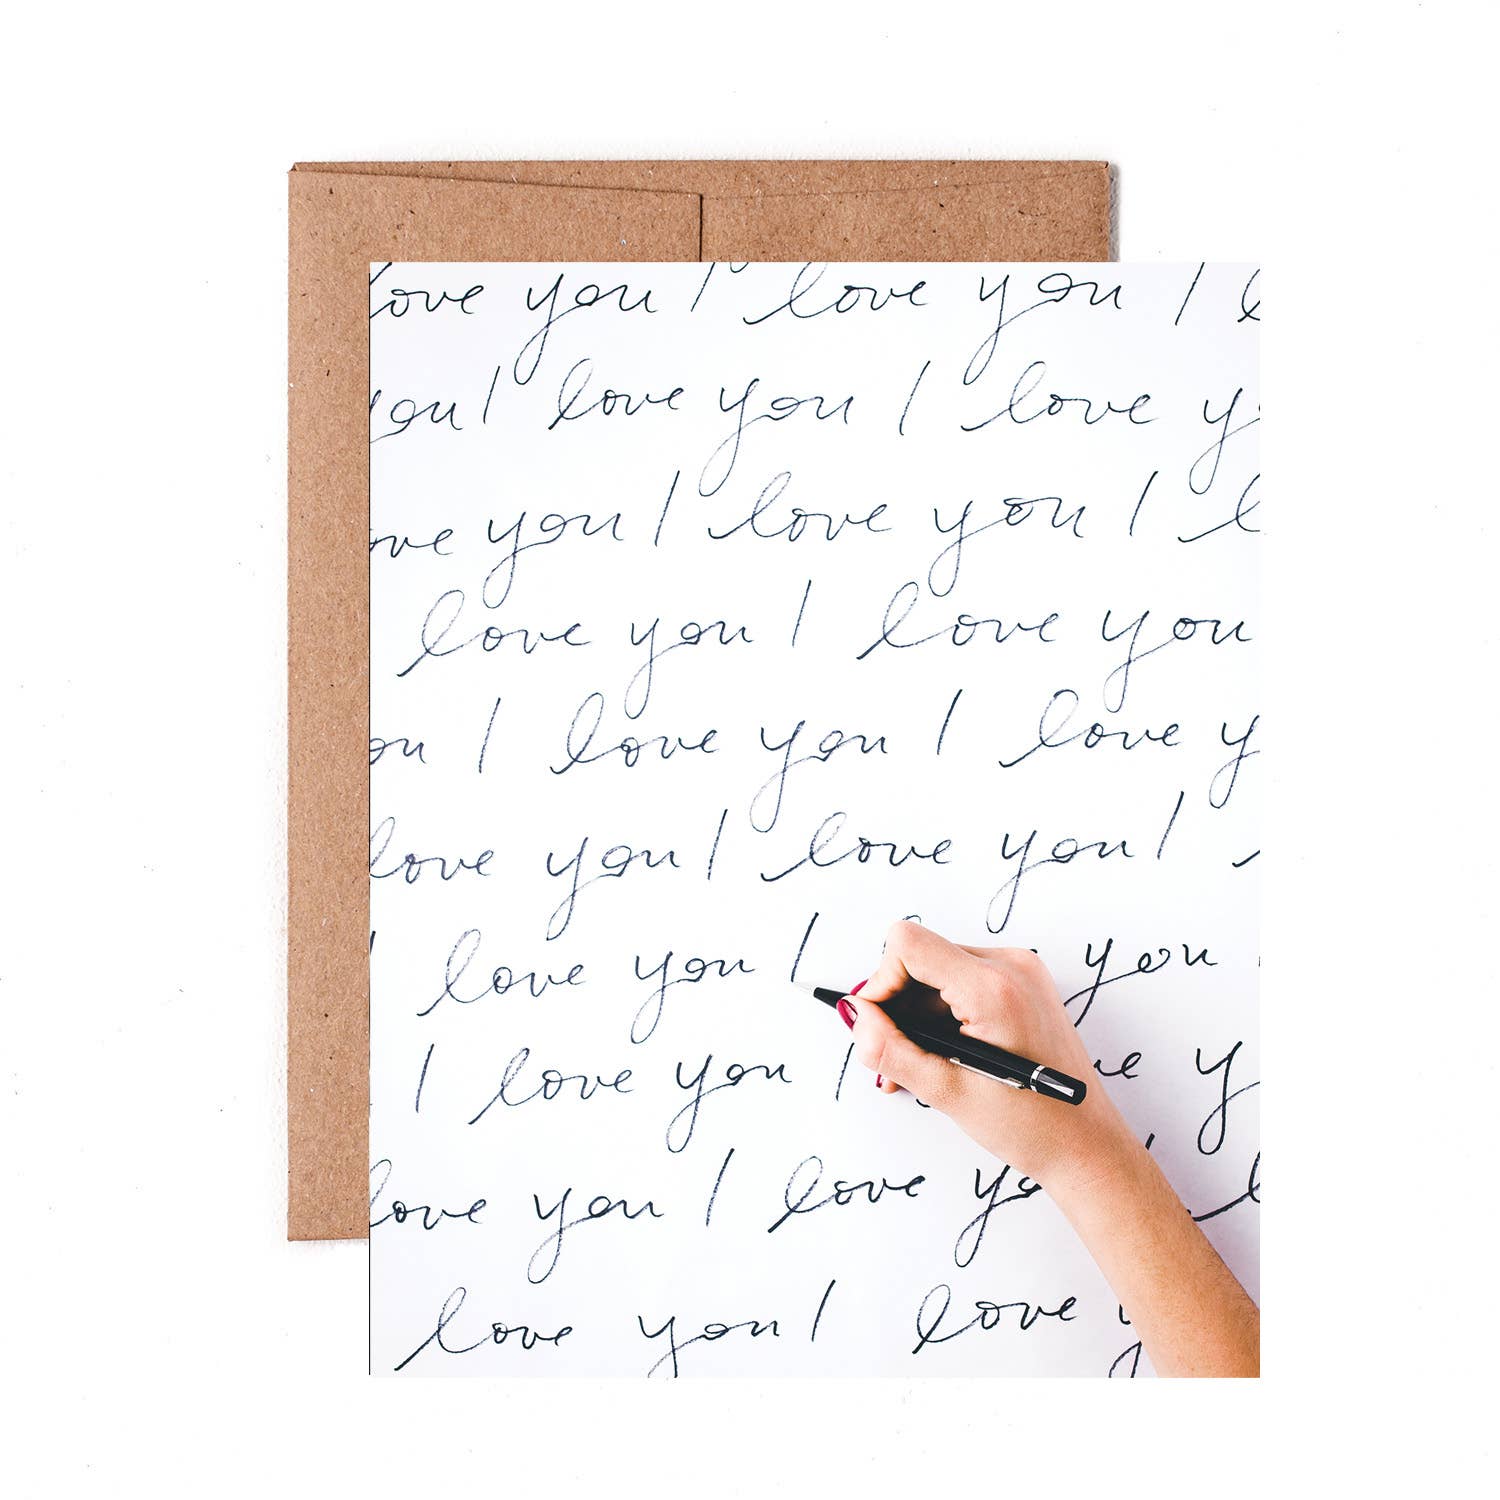 love you I love you I
you I love you I love y
ove you I love you I l
love you I love you
ou I love you I love y
love you I love you I
love you I you
I love you I e y
love you I love yo l
love you I love y